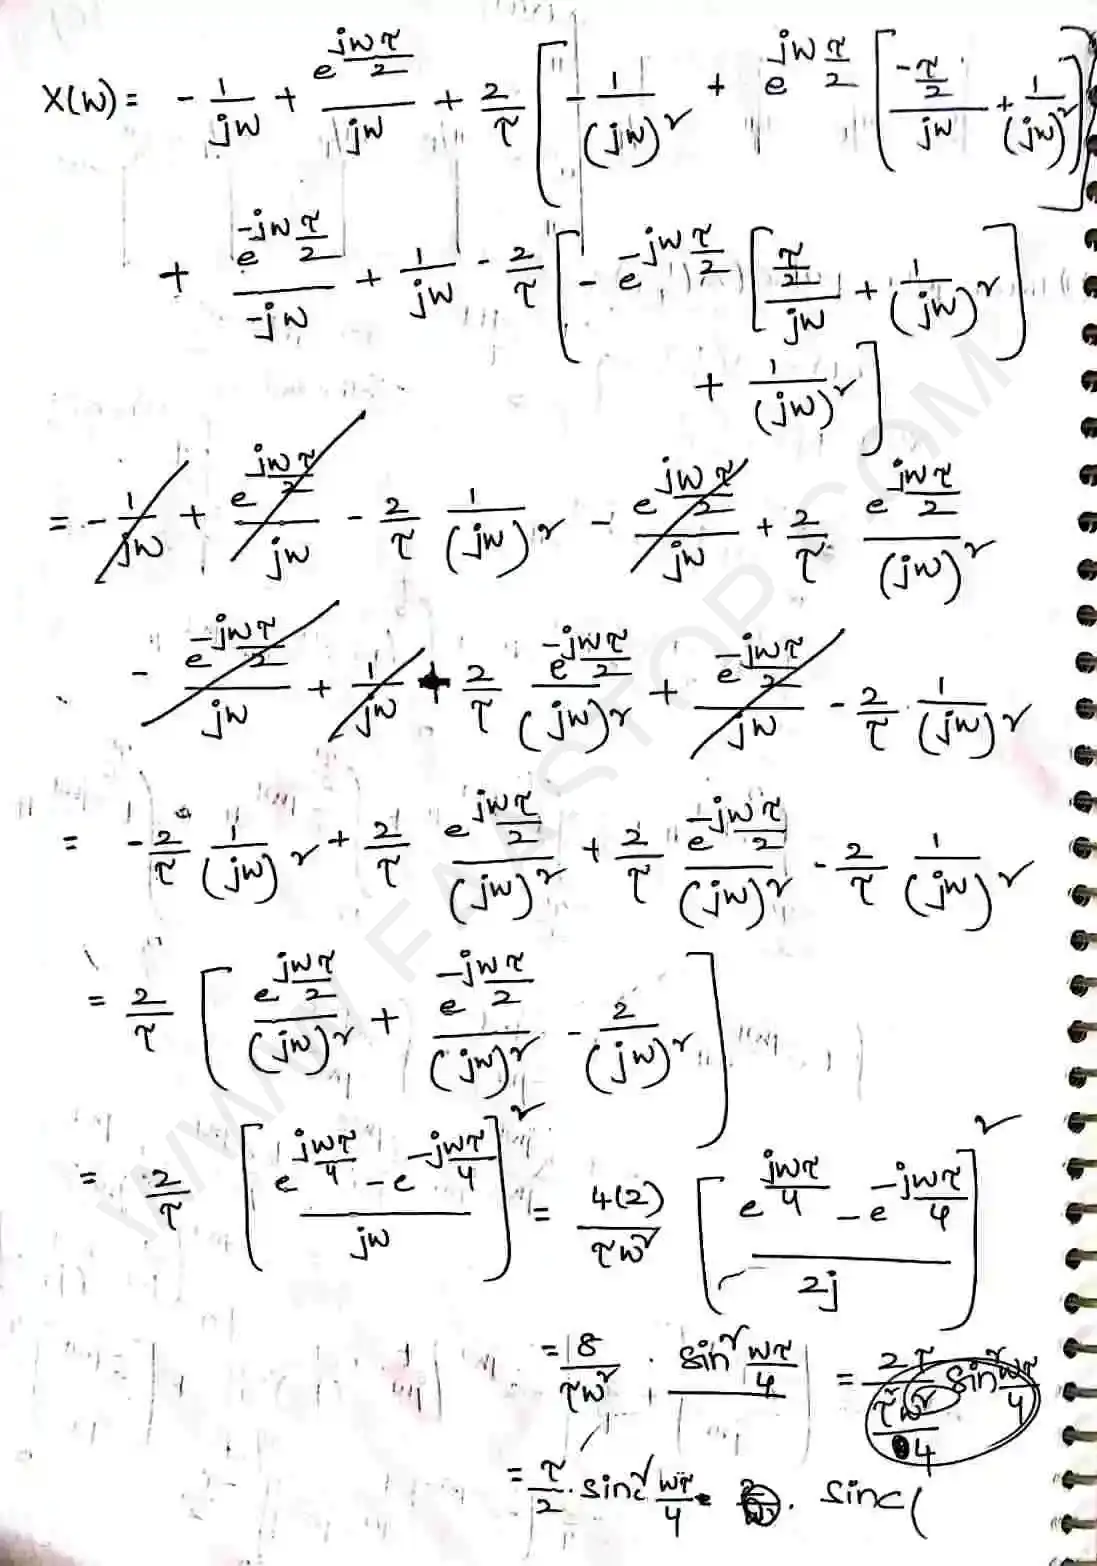 X(w) = - 1/jw + e^(jwτ/2)/jw + 2/τ [ - 1/(jw)² + e^(jwτ/2) [ (-τ/2)/jw + 1/(jw)² ] ]
+ e^(-jwτ/2)/(-jw) + 1/jw - 2/τ [ - e^(-jwτ/2) [ (τ/2)/jw + 1/(jw)² ]
+ 1/(jw)² ]
= - 1/jw + e^(jwτ/2)/jw - 2/τ 1/(jw)² - e^(jwτ/2)/jw + 2/τ e^(jwτ/2)/(jw)²
- e^(-jwτ/2)/jw + 1/jw + 2/τ e^(-jwτ/2)/(jw)² + e^(-jwτ/2)/jw - 2/τ . 1/(jw)²
= - 2/τ 1/(jw)² + 2/τ e^(jwτ/2)/(jw)² + 2/τ e^(-jwτ/2)/(jw)² - 2/τ 1/(jw)²
= 2/τ [ e^(jwτ/2)/(jw)² + e^(-jwτ/2)/(jw)² - 2/(jw)² ]
= 2/τ [ (e^(jwτ/4) - e^(-jwτ/4))/jw ]² = 4(2)/(τw²) [ (e^(jwτ/4) - e^(-jwτ/4))/2j ]²
= 8/(τw²) . sin² wτ/4 = 2τ/(τ²w²/4) sin² wτ/4
= τ/2 . sinc² wτ/4 . sinc(
WWW.FAASTOP.COM